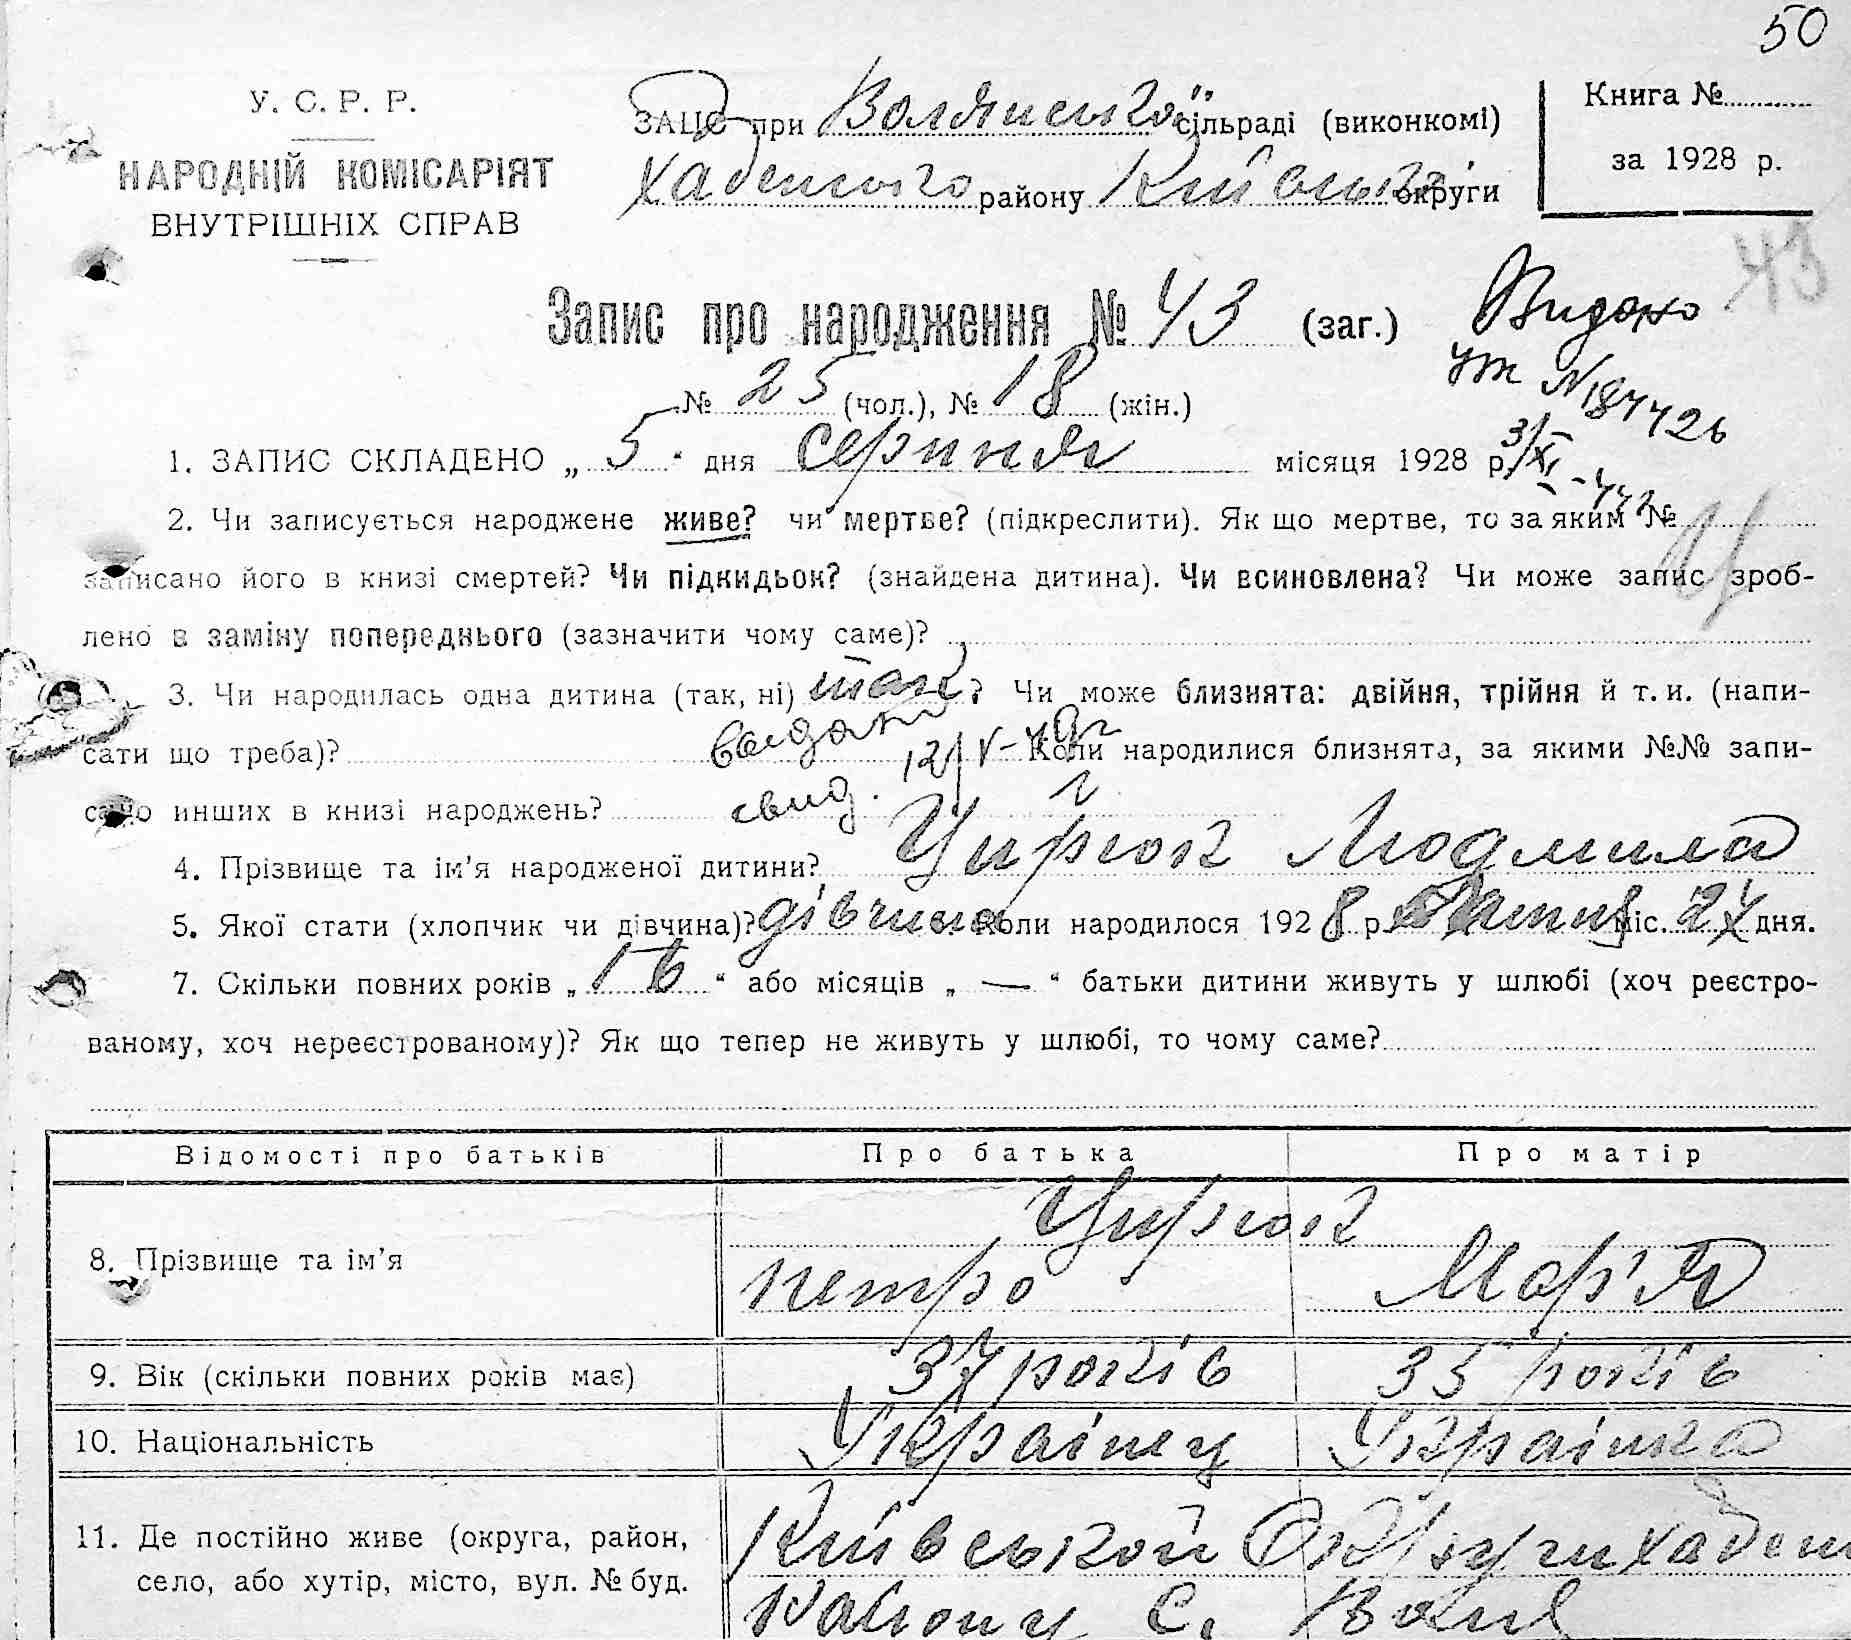 50
У. С. Р. Р.
НАРОДНІЙ КОМІСАРІЯТ
ВНУТРІШНІХ СПРАВ
ЗАЦС при Волянської сільраді (виконкомі)
Хабенського району Київсько округи
Книга №
за 1928 р.
43
Запис про народження № 43 (заг.)
№ 25 (чол.), № 18 (жін.)
Видано
1. ЗАПИС СКЛАДЕНО „ 5 “ дня серпня місяця 1928 р.
2. Чи записується народжене живе? чи мертве? (підкреслити). Як що мертве, то за яким №
записано його в книзі смертей? Чи підкидьок? (знайдена дитина). Чи всиновлена? Чи може запис зроб-
лено в заміну попереднього (зазначити чому саме)?
3. Чи народилась одна дитина (так, ні) так? Чи може близнята: двійня, трійня й т. и. (напи-
сати що треба)? выдано 12/V- Коли народилися близнята, за якими №№ запи-
сано инших в книзі народжень? свид.
4. Прізвище та ім’я народженої дитини? Цирюк Людмила
5. Якої стати (хлопчик чи дівчина)? дівчина Коли народилося 1928 р. міс. 24 дня.
7. Скільки повних років „ 16 “ або місяців „ — “ батьки дитини живуть у шлюбі (хоч реєстро-
ваному, хоч нереєстрованому)? Як що тепер не живуть у шлюбі, то чому саме?
Відомості про батьків Про батька Про матір
8. Прізвище та ім’я Цирюк
Петро Мар'я
9. Вік (скільки повних років має) 37 років 35 років
10. Національність Українец Українка
11. Де постійно живе (округа, район, Київськой Округи Хабен
село, або хутір, місто, вул. № буд. району с.